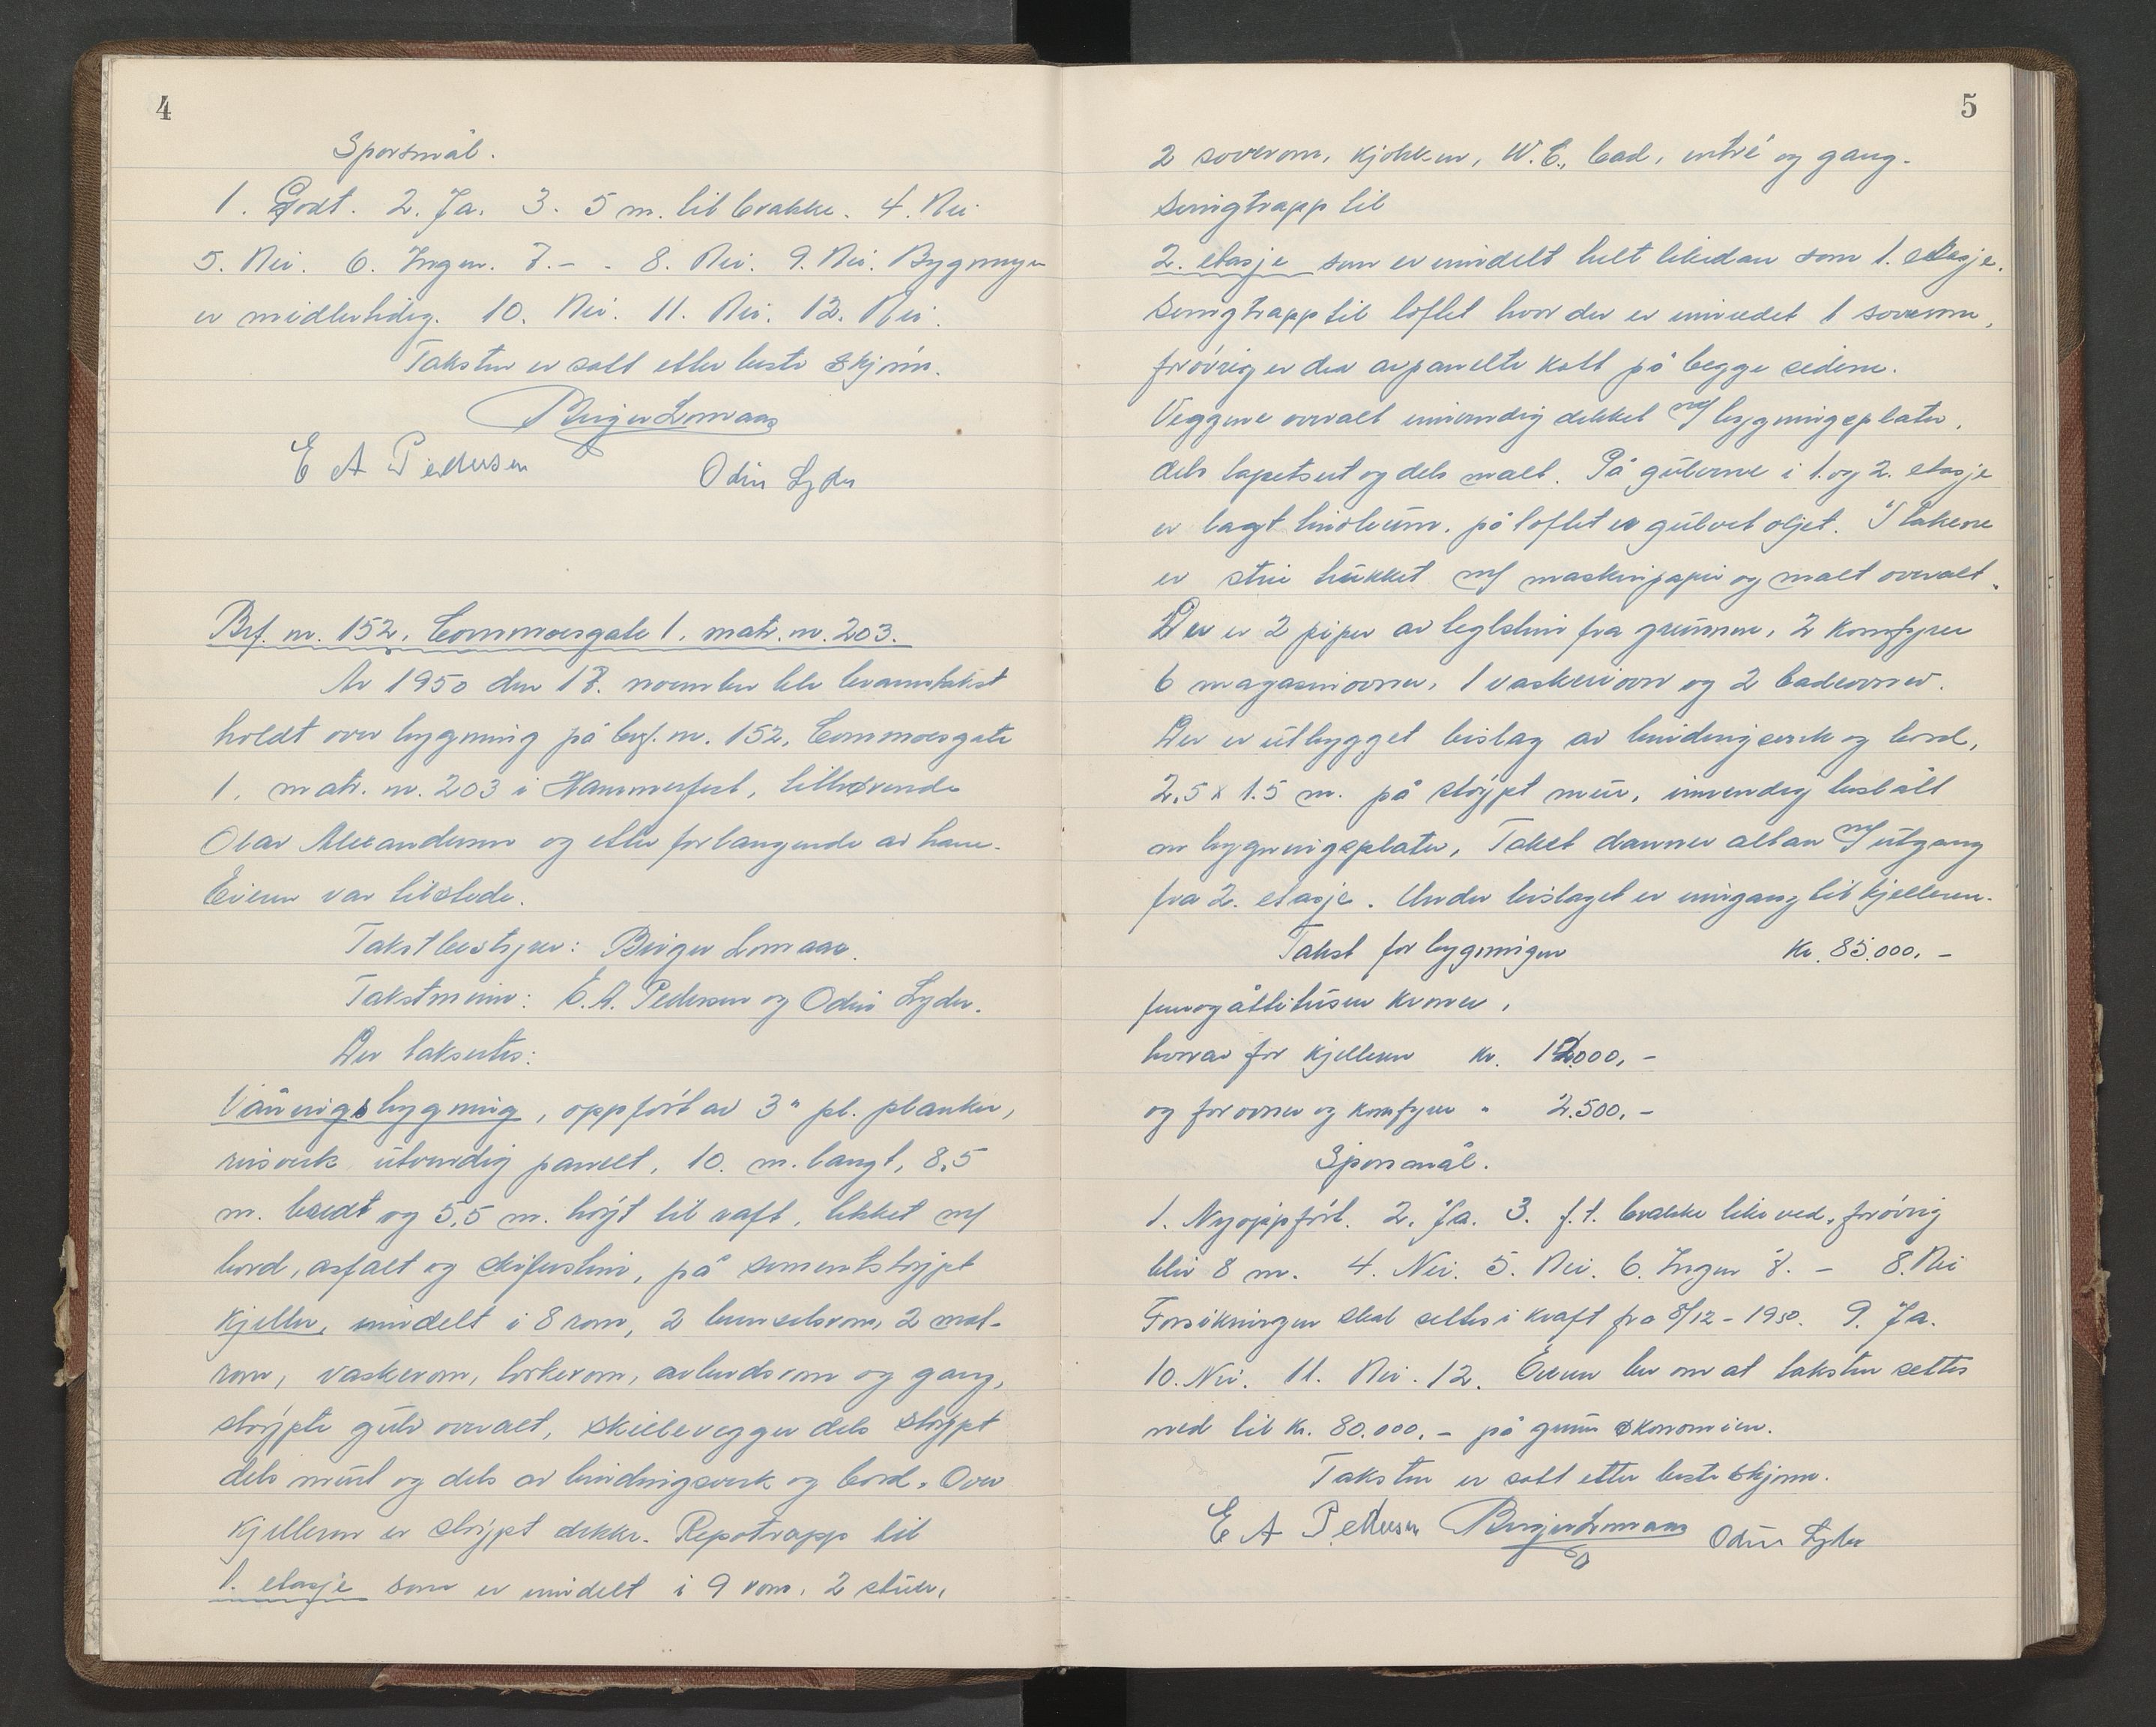 4
Spørsmål.
1. Godt. 2. Ja. 3. 5 m. til brakke. 4. Nei
5. Nei. 6. Ingen. 7. - . 8. Nei. 9. Nei. Bygningen
er midlertidig. 10. Nei. 11. Nei. 12. Nei.
Taksten er satt etter beste skjønn.
Birger Lomaas
E A Pedersen Odin Lyder
Brf. nr. 152, Cormmoesgate 1. matr. nr. 203.
År 1950 den 17. november ble branntakst
holdt over bygning på brf. nr. 152, Cormmoesgate
1. matr. nr. 203 i Hammerfest, tilhørende
Olav Alexandersen og etter forlangende av ham.
Eieren var tilstede.
Takstbestyrer: Birger Lomaas.
Takstmenn: E. A. Pedersen og Odin Lyder.
Der taksertes:
Våningsbygning, oppført av 3" pl. planker,
reisverk utvendig panelt, 10. m. langt, 8,5
m. bredt og 5,5 m. høyt til raft, tekket m/
bord, asfalt og skiferstein, på sementstøypt
kjeller, inndelt i 8 rom, 2 brenselsrom, 2 mat-
rom, vaskerom, tørkerom, arbeidsrom og gang,
støypte gulv overalt, skillevegger dels støypt
dels murt og dels av bindingsverk og bord. Over
kjelleren er støypt dekke. Repotrapp til
1. etasje som er inndelt i 9 rom, 2 stuer,
5
2 soverom, kjøkken, W.C., bad, entré og gang.
Svingtrapp til
2. etasje som er inndelt helt likedan som 1. etasje.
Svingtrapp til loftet hvor der er innredet 1 soverom,
forøvrig er der avpanelte kott på begge sidene.
Veggene overalt innvendig dekket m/ bygningsplater,
dels tapetsert og dels malt. På gulvene i 1. og 2. etasje
er lagt linoleum, på loftet er gulvet oljet. I takene
er strie trukket m/ maskinpapir og malt overalt.
Der er 2 piper av teglstein fra grunnen, 2 komfyrer
6 magasinovner, 1 vaskeriovn og 2 badeovner.
Der er utbygget bislag av bindingsverk og bord,
2,5 x 1.5 m. på støypt mur, innvendig beslått
m bygningsplater, Taket danner altan m/ utgang
fra 2. etasje. Under bislaget er inngang til kjelleren.
Takst for bygningen Kr. 85.000. -
femogåttitusen kroner,
hvorav for kjelleren kr. 12.000, -
og for ovner og komfyrer " 2.500, -
Spørsmål.
1. Nyoppført. 2. Ja. 3. f. t. brakke like ved, forøvrig
blir 8 m. 4. Nei. 5. Nei. 6. Ingen 7. - 8. Nei
Forsikringen skal settes i kraft fra 8/12 - 1950. 9. Ja.
10. Nei. 11. Nei. 12. Eieren ber om at taksten settes
ned til kr. 80.000. - på grunn økonomien.
Taksten er satt etter beste skjønn.
E A Pedersen Birger Lomaas Odin Lyder